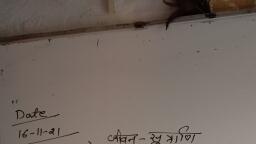 Date
16-11-21
जीवन - सूत्राणि